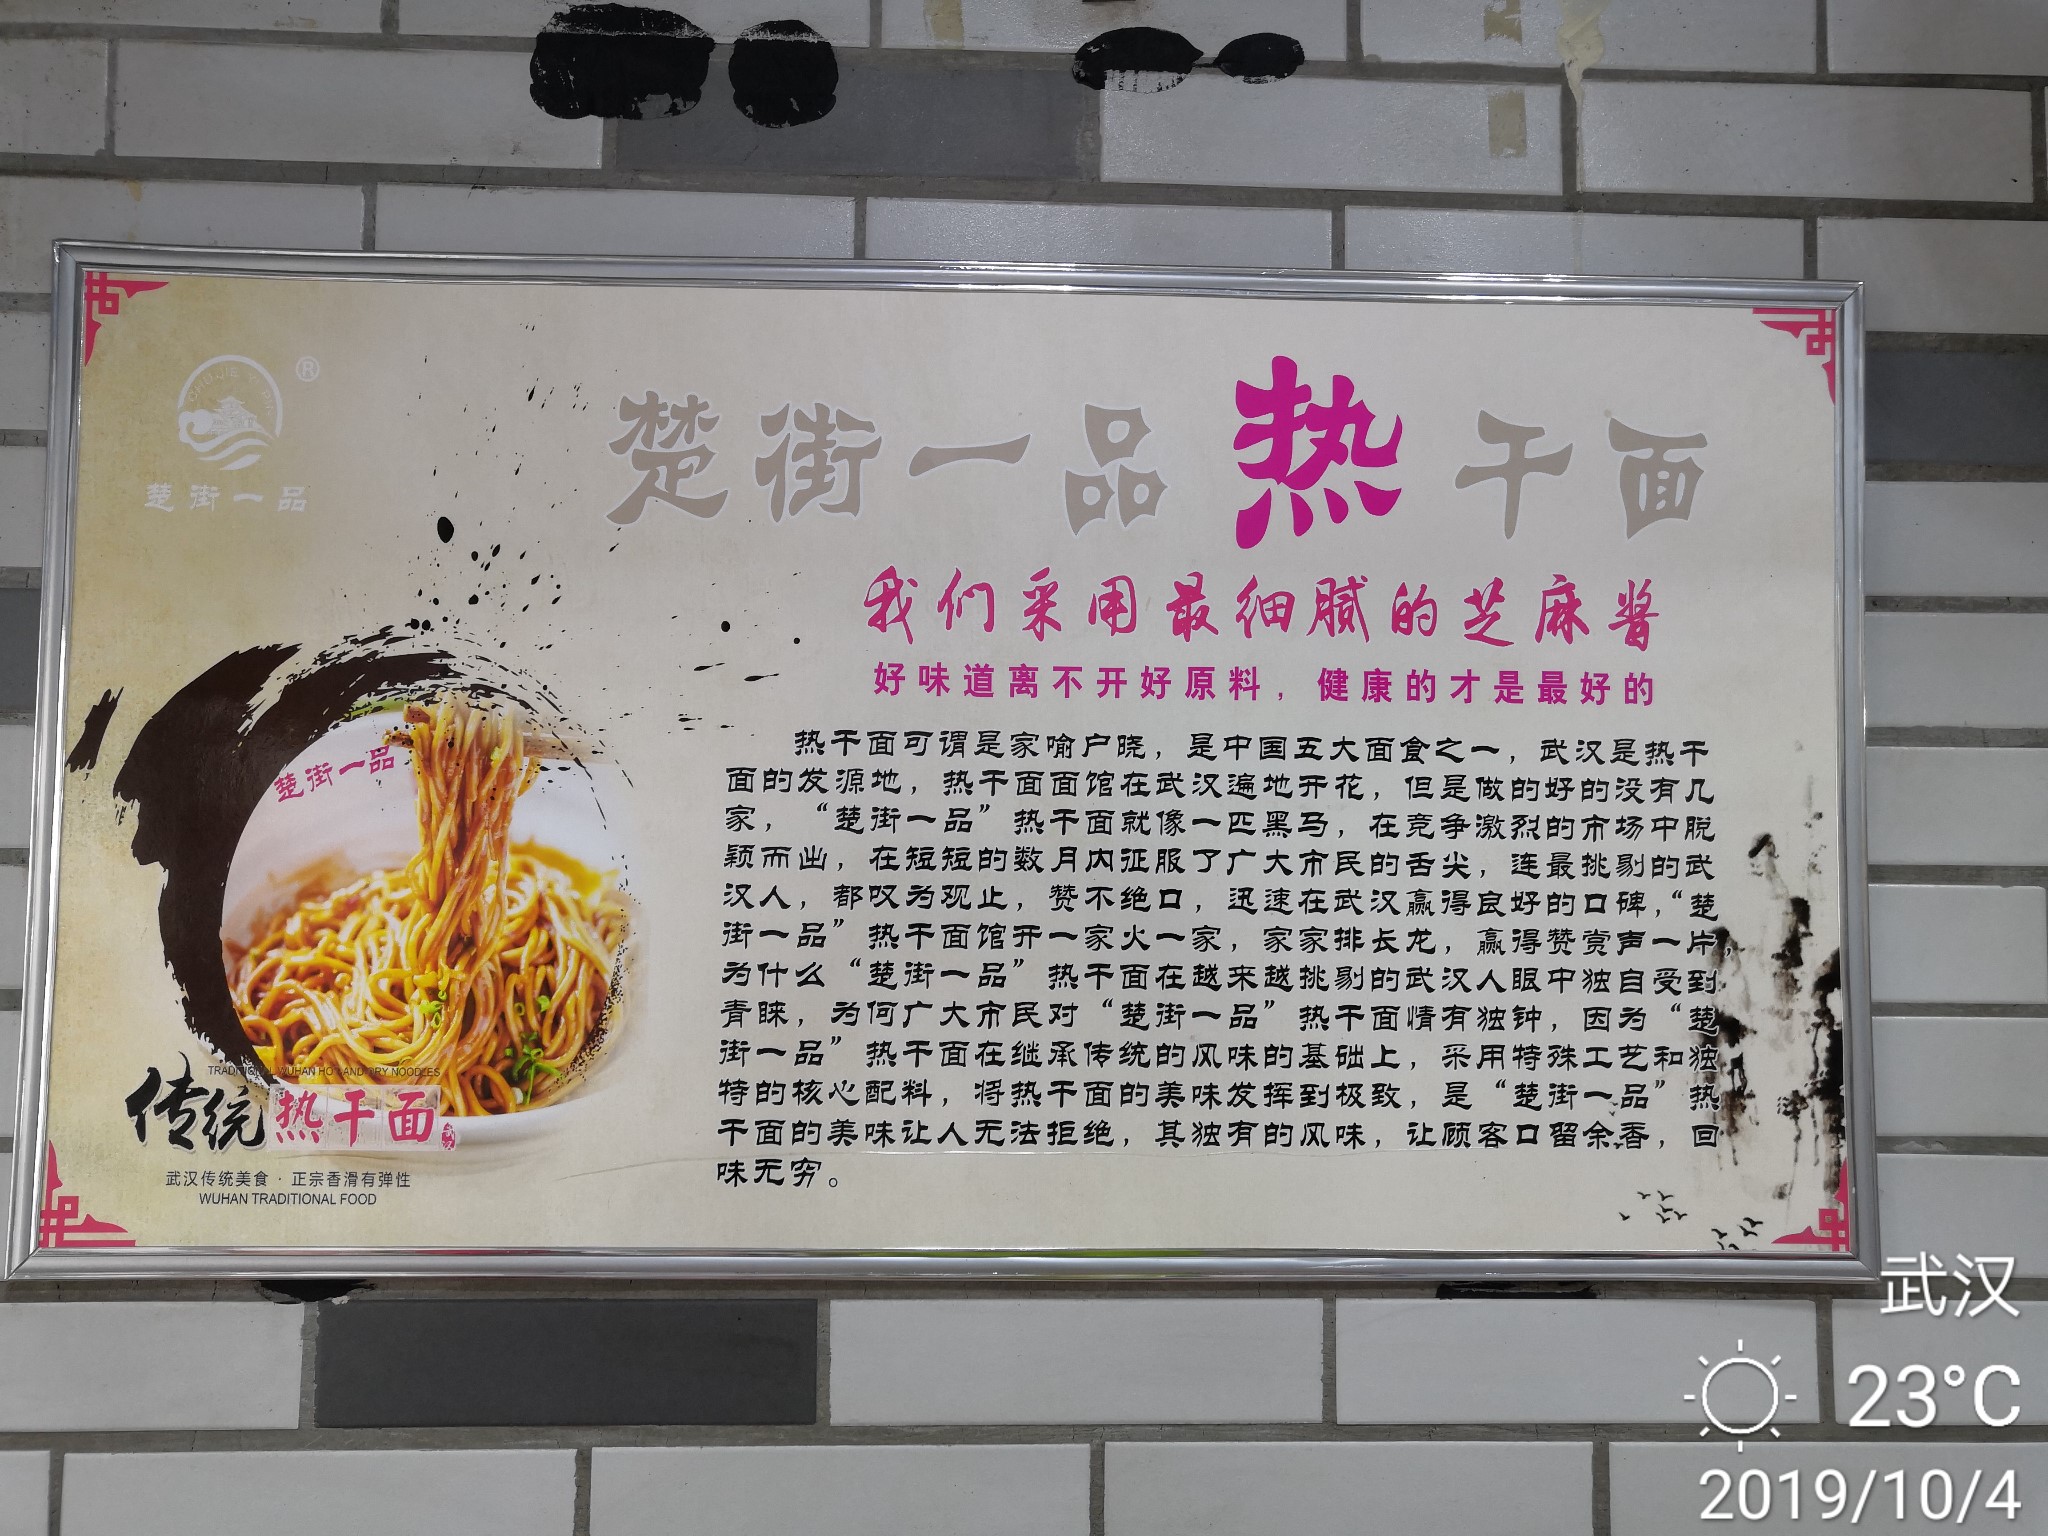 CHUJIE YIPIN
®
楚街一品
楚街一品热干面
我们采用最细腻的芝麻酱
好味道离不开好原料，健康的才是最好的
热干面可谓是家喻户晓，是中国五大面食之一，武汉是热干
面的发源地，热干面面馆在武汉遍地开花，但是做的好的没有几
家，“楚街一品”热干面就像一匹黑马，在竞争激烈的市场中脱
颖而出，在短短的数月内征服了广大市民的舌尖，连最挑剔的武
汉人，都叹为观止，赞不绝口，迅速在武汉赢得良好的口碑，“楚
街一品”热干面馆开一家火一家，家家排长龙，赢得赞赏声一片，
为什么“楚街一品”热干面在越来越挑剔的武汉人眼中独自受到
青睐，为何广大市民对“楚街一品”热干面情有独钟，因为“楚
街一品”热干面在继承传统的风味的基础上，采用特殊工艺和独
特的核心配料，将热干面的美味发挥到极致，是“楚街一品”热
干面的美味让人无法拒绝，其独有的风味，让顾客口留余香，回
味无穷。
楚街一品
TRADITIONAL WUHAN HOT AND DRY NOODLES
传统热干面
武汉传统美食·正宗香滑有弹性
WUHAN TRADITIONAL FOOD
武汉
23°C
2019/10/4